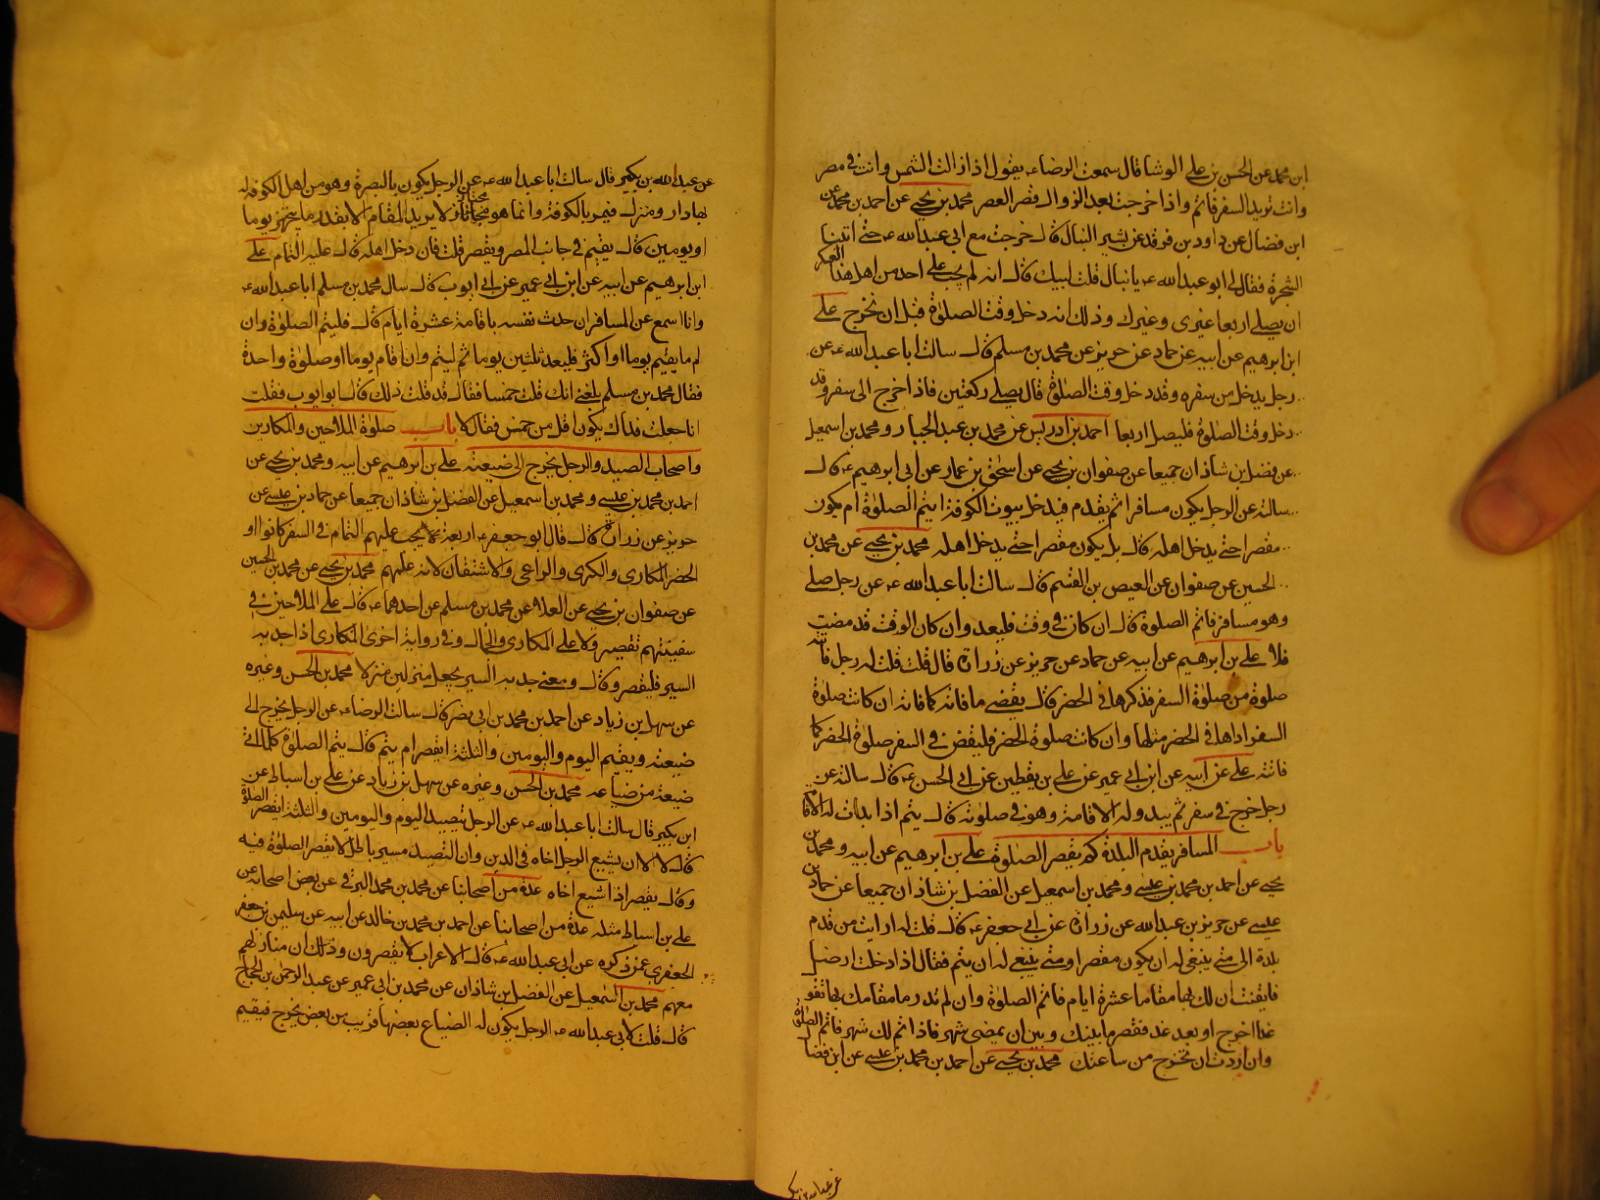 ابن محمد عن الحسن بن علي الوشا قال سمعت الرضاء يقول اذا زالت الشمس وانت في مصر
وانت تريد السفر فاتم واذا خرجت بعد الزوال قصر العصر محمد بن يحيى عن احمد بن محمد عن
ابن فضال عن داود بن فرقد عن بشير النبال قال خرجت مع ابي عبد الله ع حتى اتينا
الشجرة فقال لي ابو عبد الله ع يا نبال قلت لبيك قال انه لم يجب على احد من اهل هذا العسكر
ان يصلي اربعا غيري وغيرك وذلك انه دخل وقت الصلوة قبل ان نخرج علي
ابن ابرهيم عن ابيه عن حماد عن حريز عن محمد بن مسلم قال سالت ابا عبد الله ع عن
رجل يدخل من سفره وقد دخل وقت الصلوة قال يصلي ركعتين فاذا خرج الى سفر وقد
دخل وقت الصلوة فليصل اربعا احمد بن ادريس عن محمد بن عبد الجبار ومحمد بن اسمعيل
عن فضل بن شاذان جميعا عن صفوان بن يحيى عن اسحق بن عمار عن ابي ابرهيم ع قال
سالته عن الرجل يكون مسافرا ثم يقدم فيدخل بيوت الكوفة ايتم الصلوة ام يكون
مقصرا حتى يدخل اهله قال بل يكون مقصرا حتى يدخل اهله محمد بن يحيى عن محمد بن
الحسين عن صفوان عن العيص بن القسم قال سالت ابا عبد الله ع عن رجل صلى
وهو مسافر فاتم الصلوة قال ان كان في وقت فليعد وان كان الوقت قد مضت
فلا علي بن ابرهيم عن ابيه عن حماد عن حريز عن زرارة قال قلت قلت له رجل فاتته
صلوة من صلوة السفر فذكرها في الحضر قال يقضي ما فاته كما فاته ان كانت صلوة
السفر اداها في الحضر مثلها وان كانت صلوة الحضر فليقض في السفر صلوة الحضر كما
فاتته علي عن ابيه عن ابن ابي عمير عن علي بن يقطين عن ابي الحسن ع قال سالته عن
رجل خرج في سفر ثم يبدو له الاقامة وهو في صلوته قال يتم اذا بدات له الاقا
باب المسافر يقدم البلدة كم يقصر الصلوة علي بن ابرهيم عن ابيه ومحمد بن
يحيى عن احمد بن محمد بن عيسى ومحمد بن اسمعيل عن الفضل بن شاذان جميعا عن حماد بن
عيسى عن حريز بن عبد الله عن زرارة عن ابي جعفر ع قال قلت له ارايت من قدم
بلدة الى متى ينبغي له ان يكون مقصرا ومتى ينبغي له ان يتم فقال اذا دخلت ارضا
فايقنت ان لك بها مقاما عشرة ايام فاتم الصلوة وان لم تدر ما مقامك بها تقو
غدا اخرج او بعد غد فقصر ما بينك وبين ان يمضي شهر فاذا تم لك شهر فاتم الصلوة
وان اردت ان تخرج من ساعتك محمد بن يحيى عن احمد بن محمد بن عيسى عن ابن فضا
عن عبد الله بن بكير
عن عبد الله بن بكير قال سالت ابا عبد الله ع عن الرجل يكون بالبصرة وهو من اهل الكوفة له
بها دار ومنزل فيمر بالكوفة وانما هو مجتاز لا يريد المقام الا بقدر ما يتجهز يوما
او يومين قال يقيم في جانب المصر ويقصر قلت فان دخل اهله قال عليه التمام علي
ابن ابرهيم عن ابيه عن ابن ابي عمير عن ابي ايوب قال سال محمد بن مسلم ابا عبد الله ع
وانا اسمع عن المسافر ان حدث نفسه باقامة عشرة ايام قال فليتم الصلوة وان
لم ما يقيم يوما او اكثر فليعد ثلثين يوما ثم ليتم وان اقام يوما او صلوة واحدة
فقال محمد بن مسلم بلغني انك قلت خمسا فقال قد قلت ذلك قال ابو ايوب فقلت
انا جعلت فداك يكون اقل من خمس فقال لا باب صلوة الملاحين والمكارين
واصحاب الصيد والرجل يخرج الى ضيعته علي بن ابرهيم عن ابيه ومحمد بن يحيى عن
احمد بن محمد بن عيسى ومحمد بن اسمعيل عن الفضل بن شاذان جميعا عن حماد بن عيسى عن
حريز عن زرارة قال قال ابو جعفر ع اربعة يجب عليهم التمام في السفر كانوا او
الحضر المكاري والكري والراعي والاشتقان لانه عملهم محمد بن يحيى عن محمد بن الحسين
عن صفوان بن يحيى عن العلا عن محمد بن مسلم عن احدهما ع قال على الملاحين في
سفينتهم تقصير ولا على المكاري والجمال وفي رواية اخرى المكاري اذا جد به
السير فليقصر وقال ومعنى جد به السير يجعل منزلين منزلا محمد بن الحسن وغيره
عن سهل بن زياد عن احمد بن محمد بن ابي نصر قال سالت الرضاء عن الرجل يخرج الى
ضيعته ويقيم اليوم واليومين والثلثة ايقصر ام يتم قال يتم الصلوة كلما اتى
ضيعة من ضياعه محمد بن الحسن وغيره عن سهل بن زياد عن علي بن اسباط عن
ابن بكير قال سالت ابا عبد الله ع عن الرجل يتصيد اليوم واليومين والثلثة ايقصر الصلوة
قال لا الا ان يشيع الرجل اخاه في الدين وان التصيد مسير باطل لا تقصر الصلوة فيه
وقال يقصر اذا شيع اخاه عدة من اصحابنا عن محمد بن محمد البرقي عن بعض اصحابه عن
علي بن اسباط مثله عدة من اصحابنا عن احمد بن محمد بن خالد عن ابيه عن سليمن بن جعفر
الجعفري عمن ذكره عن ابي عبد الله ع قال الاعراب لا يقصرون وذلك ان منازلهم
معهم محمد بن اسمعيل عن الفضل بن شاذان عن محمد بن ابي عمير عن عبد الرحمن بن الحجاج
قال قلت لابي عبد الله ع الرجل يكون له الضياع بعضها قريب من بعض يخرج فيقيم